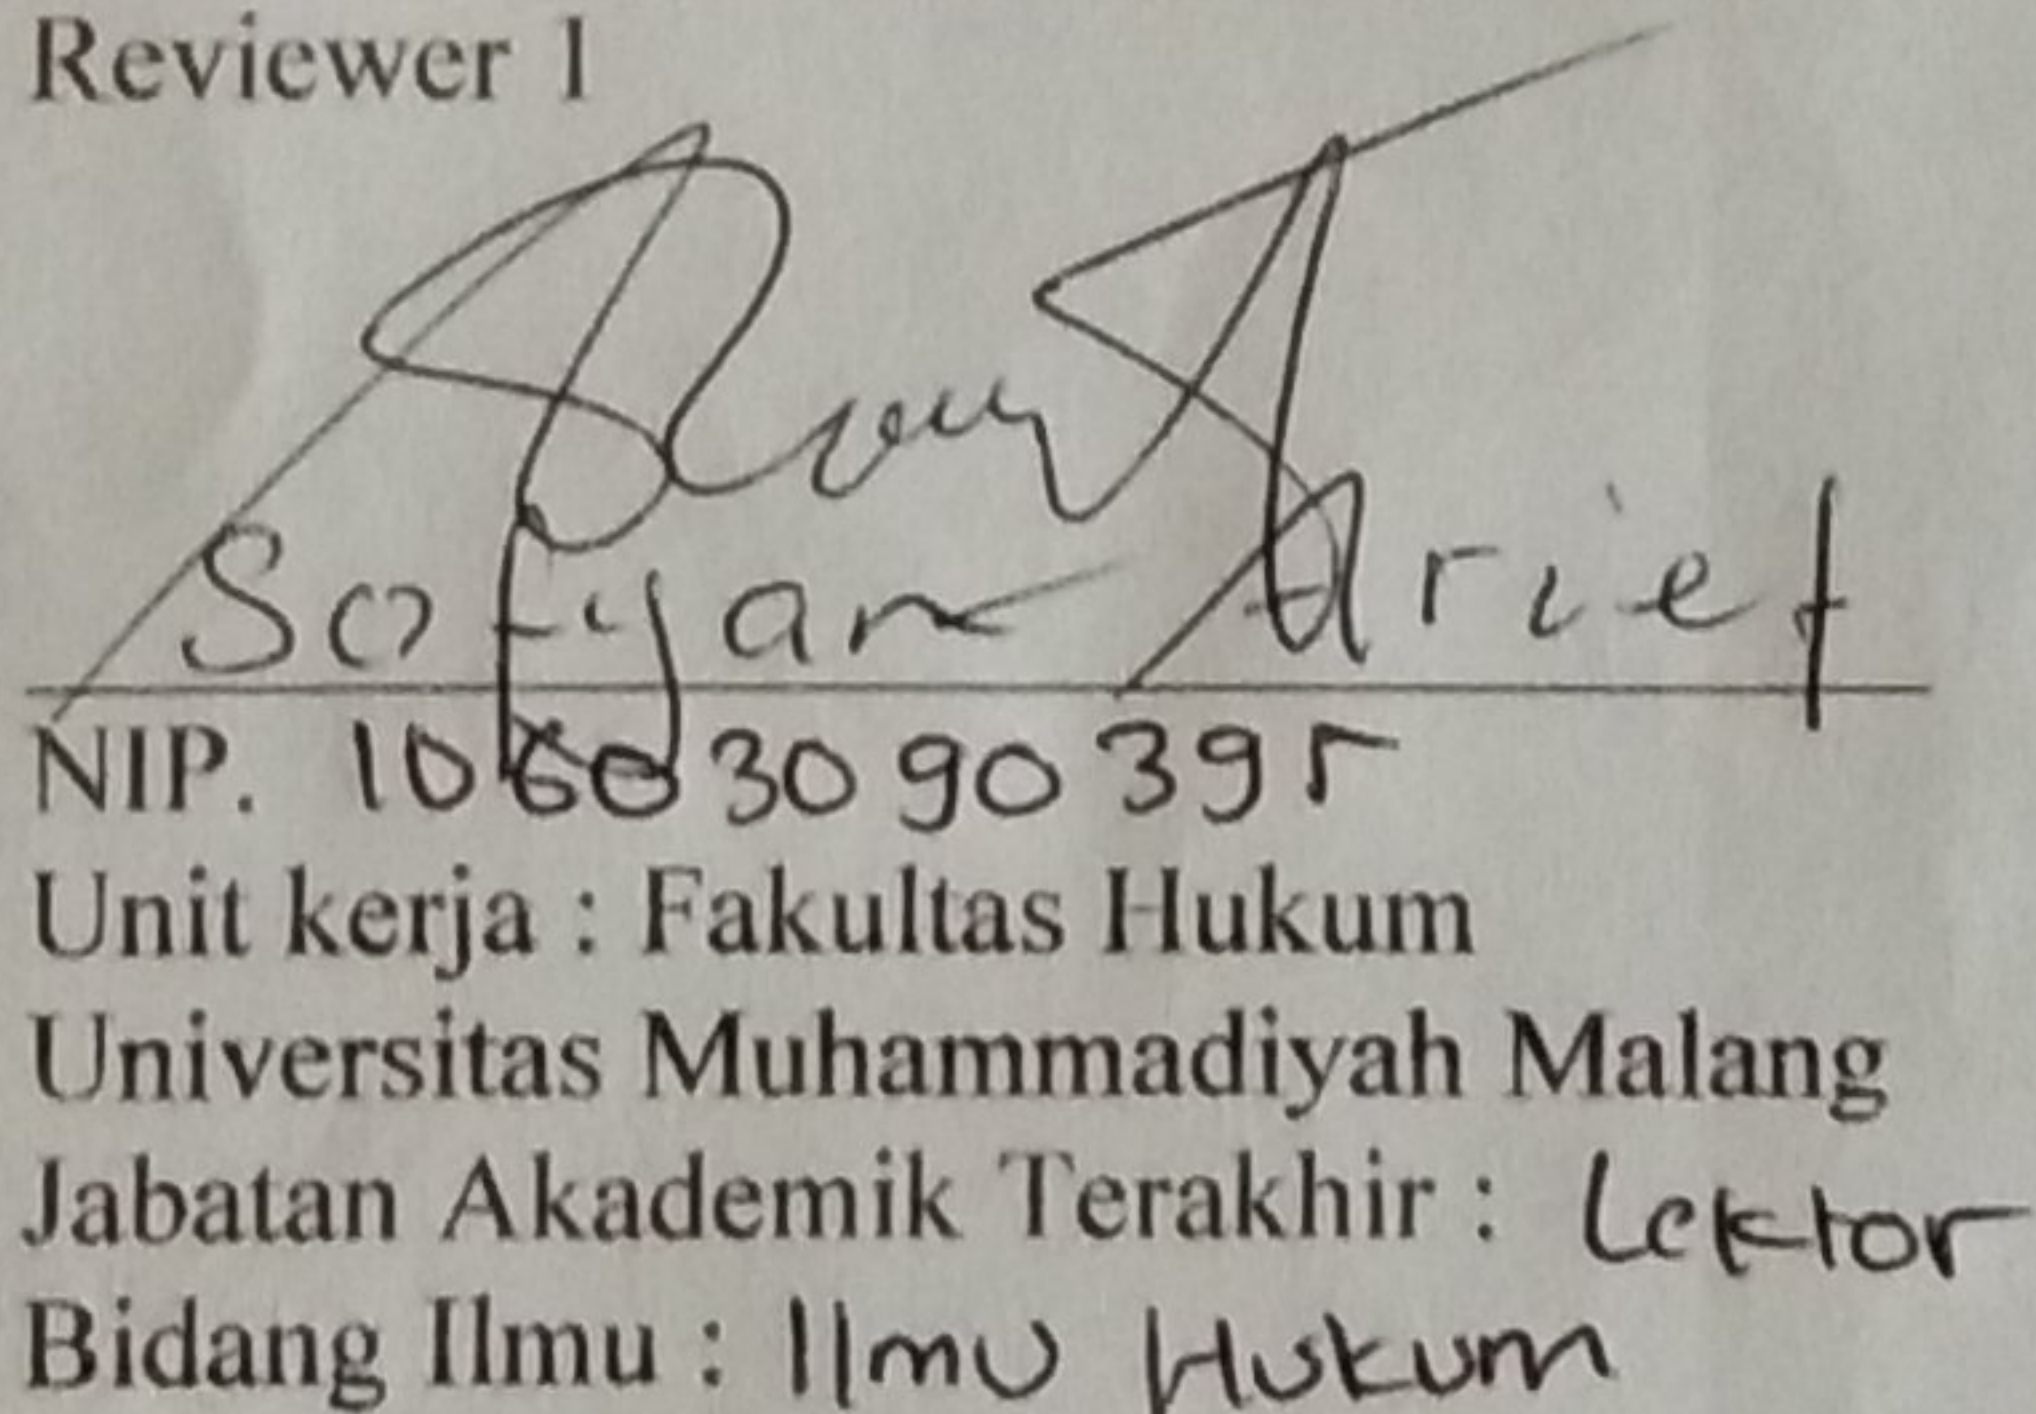 Reviewer 1
Sofyan Arief
NIP. 10603090395
Unit kerja : Fakultas Hukum
Universitas Muhammadiyah Malang
Jabatan Akademik Terakhir : Lektor
Bidang Ilmu : Ilmu Hukum